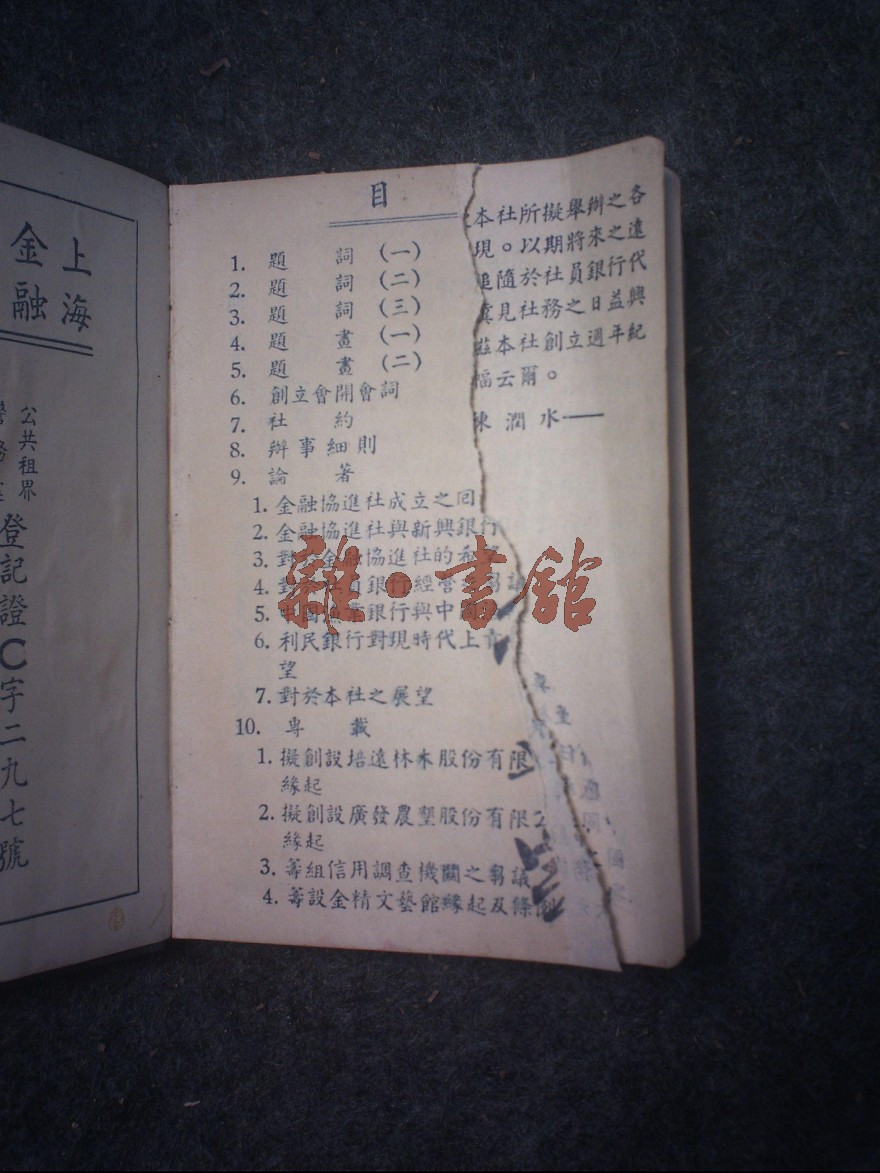 上海
金融
公共租界
登記證C字二九七號
目
1. 題 詞 (一)
2. 題 詞 (二)
3. 題 詞 (三)
4. 題 畫 (一)
5. 題 畫 (二)
6. 創立會開會詞
7. 社 約
8. 辦事細則
9. 論 著
1. 金融協進社成立之回
2. 金融協進社與新興銀行
3. 對 金融協進社的希望
4. 銀行經營 芻議
5. 中國 業銀行與中
6. 利民銀行對現時代上
望
7. 對於本社之展望
10. 專 載
1. 擬創設培遠林木股份有限
緣起
2. 擬創設廣發農墾股份有限
緣起
3. 籌組信用調查機關之芻議
4. 籌設金精文藝館緣起及條例
本社所擬舉辦之各
現。所以期將來之遠
追隨於社員銀行代
冀見社務之日益興
茲本社創立週年紀
云爾。
陳潤水——
雜·書館